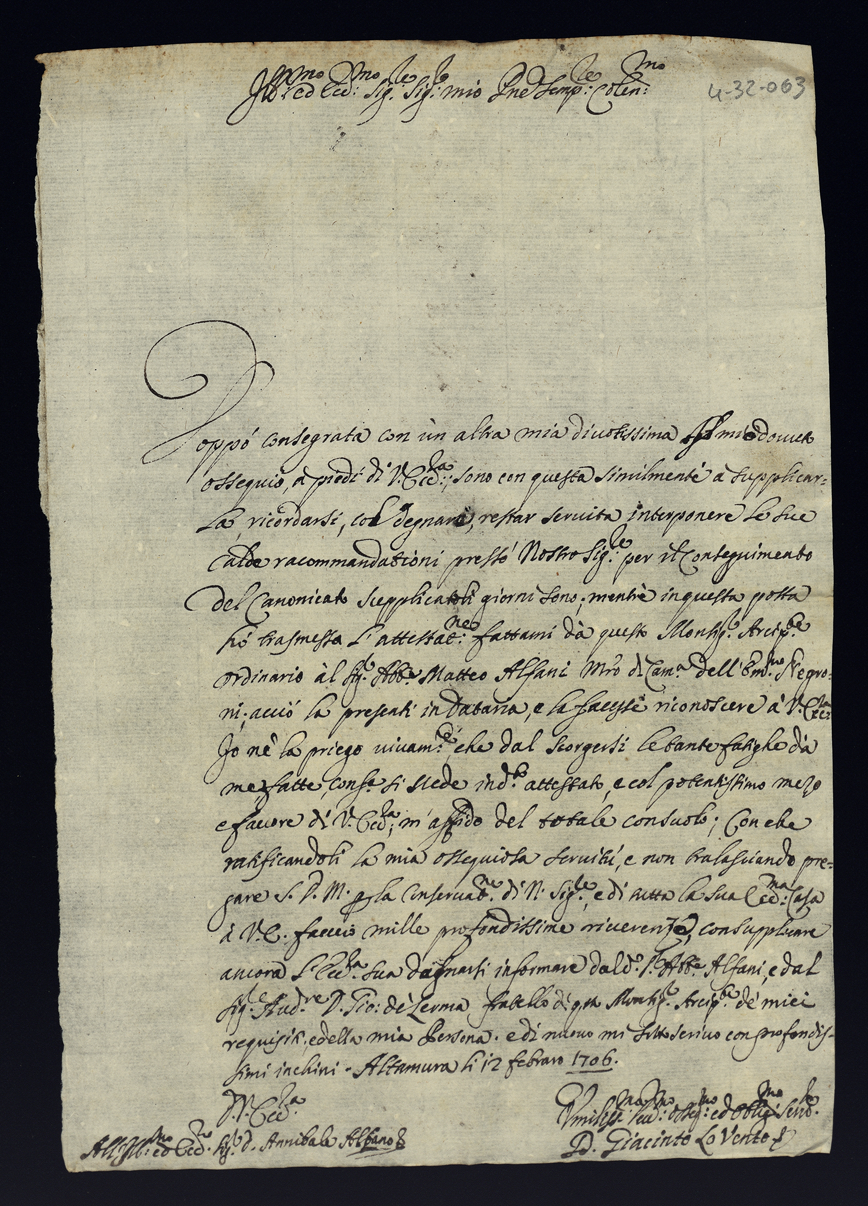 Ill.mo ed Ecc.mo Sig.re Sig.re mio P.ne Semp.re Colen.mo
4-32-063
Doppò consegrata con un altra mia divotissima il mio dovuto
ossequio, a piedi di V. Ecc.za; sono con questa similmente a supplicar=
la, ricordarsi, col degnarsi, restar servita interponere le sue
calde racommandationi presso Nostro Sig.re per il conseguimento
del Canonicato supplicatoli giorni sono; mentre in questa posta
hò trasmessa l'attestat.ne fattami dà questo Monsig.r Arcip.te
ordinario àl Sig.r Abb.e Matteo Alfani M.ro di Cam.a dell'Em.mo Negro=
ni; acciò la presenti in Dataria, e la facesse riconoscere à V. Ecc.za
Io nè la priego vivam.te, che dal scorgersi le tante fatighe dà
me fatte conf.e si vede in d.o attestato, e col potentissimo mezo
e favore di V. Ecc.za, m'affido del totale consuolo; Con che
ratificandoli la mia ossequiosa servitù, e non tralasciando pre=
gare S. D. M. per la Conservat.ne di N. Sig.re, e di tutta la sua Ecc.ma Casa
à V. E. faccio mille profondissime riverenze, con supplicare
ancora l'Ecc.za sua degnarsi informare dal d.o S.r Abb.e Alfani, e dal
Sig.r Aud.re D. Gio: de Lerma fratello di q.to Monsig.r Arcip.te de miei
requisiti, e della mia Persona. e di nuovo mi sottoscrivo con profondis=
simi inchini. Altamura li 12 febraro 1706.
D. V. Ecc.za
Umiliss.mo Dev.mo Osseq.mo ed Oblig.mo Serv.re
All'Ill.mo ed Ecc.mo Sig.r D. Annibale Albano
D. Giacinto Lo Vento